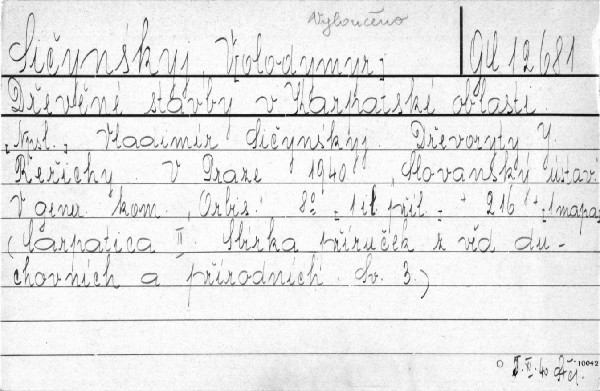 Vyloučeno
Sičynśkyj, Volodymyr; GU 12681
Dřevěné stavby v Karpatské oblasti.
Npsl. Vladimir Sičynskyj. Dřevoryty J.
Řeřichy. V Praze 1940. Slovanský ústav
V gener. kom. "Orbis." 8° 1 til. příl. + 216 + 1 mapa
(Carpatica II. Sbírka příruček z věd du-
chovních a přírodních. Sv. 3.)
10042
5. VI. 40